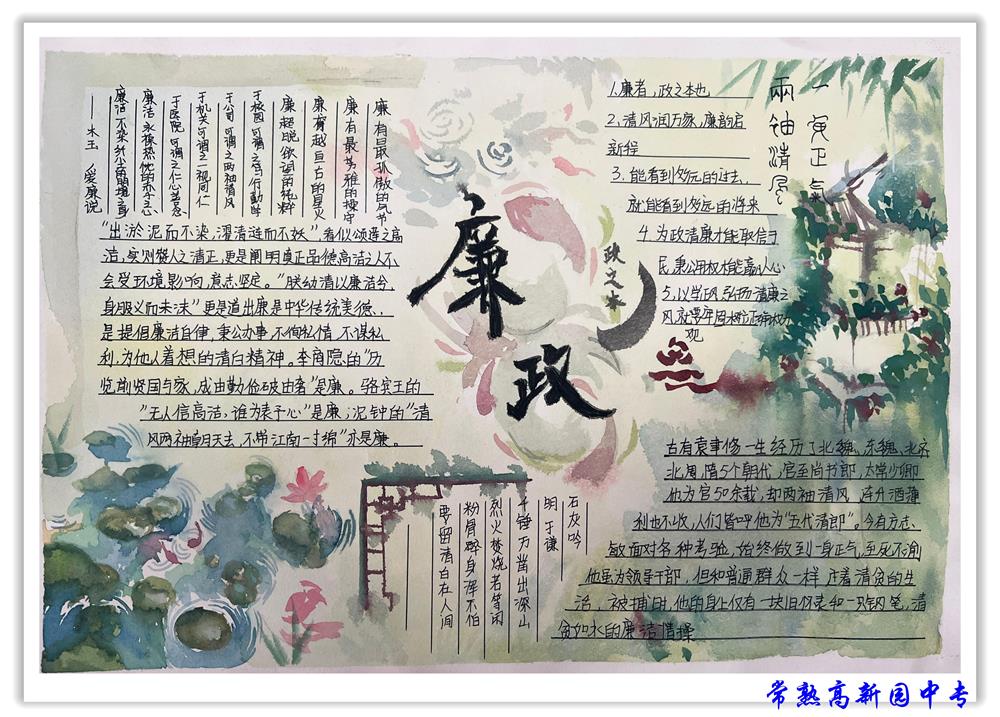 廉有最孤傲的气节
廉有最芳雅的操守
廉有越亘古的星火
廉超脱欲词曲的纯粹
于校园可谓之笃行勤学
于公司可谓之两袖清风
于机关可谓之一视同仁
于医院可谓仁心善念
廉洁永操热忱的赤子之志
廉洁不染纤尘的朗境之身
——木玉《爱廉说》
“出淤泥而不染，濯清涟而不妖”，看似颂莲之高
洁，实则赞人之清正，更是阐明真正品德高洁之人不
会受环境影响，意志坚定。“朕幼清以廉洁兮，
身服义而未沫”更是道出廉是中华传统美德，
是提倡廉洁自律，秉公办事，不徇私情，不谋私
利，为他人着想的清白精神。李商隐的“历
览前贤国与家，成由勤俭破由奢”是廉。骆宾王的
“无人信高洁，谁为表予心”是廉；况钟的“清
风两袖朝天去，不带江南一寸棉”亦是廉。
廉政
政之本
1.廉者，政之本也
2、清风润万家，廉韵启
新程
3.能看到多远的过去，
就能看到多远的将来
4.为政清廉才能取信于
民，秉公用权才能赢人心
5、以学正风，弘扬清廉之
观
一身正气
兩袖清风
石灰吟
明 于谦
千锤万凿出深山
烈火焚烧若等闲
粉骨碎身浑不怕
要留清白在人间
古有袁聿修一生经历了北魏、东魏、北齐
北周、隋5个朝代，官至尚书郎，太常少卿
他为官50余载，却两袖清风，连升酒薄
利也不收，人们皆呼他为“五代清郎”。今有方志
敏面对各种考验，始终做到一身正气，至死不渝
他虽为领导干部，但和普通群众一样过着清贫的生
活，被捕时，他的身上仅有一块旧怀表和一只钢笔，清
贫如水的廉洁情操
常熟高新园中专